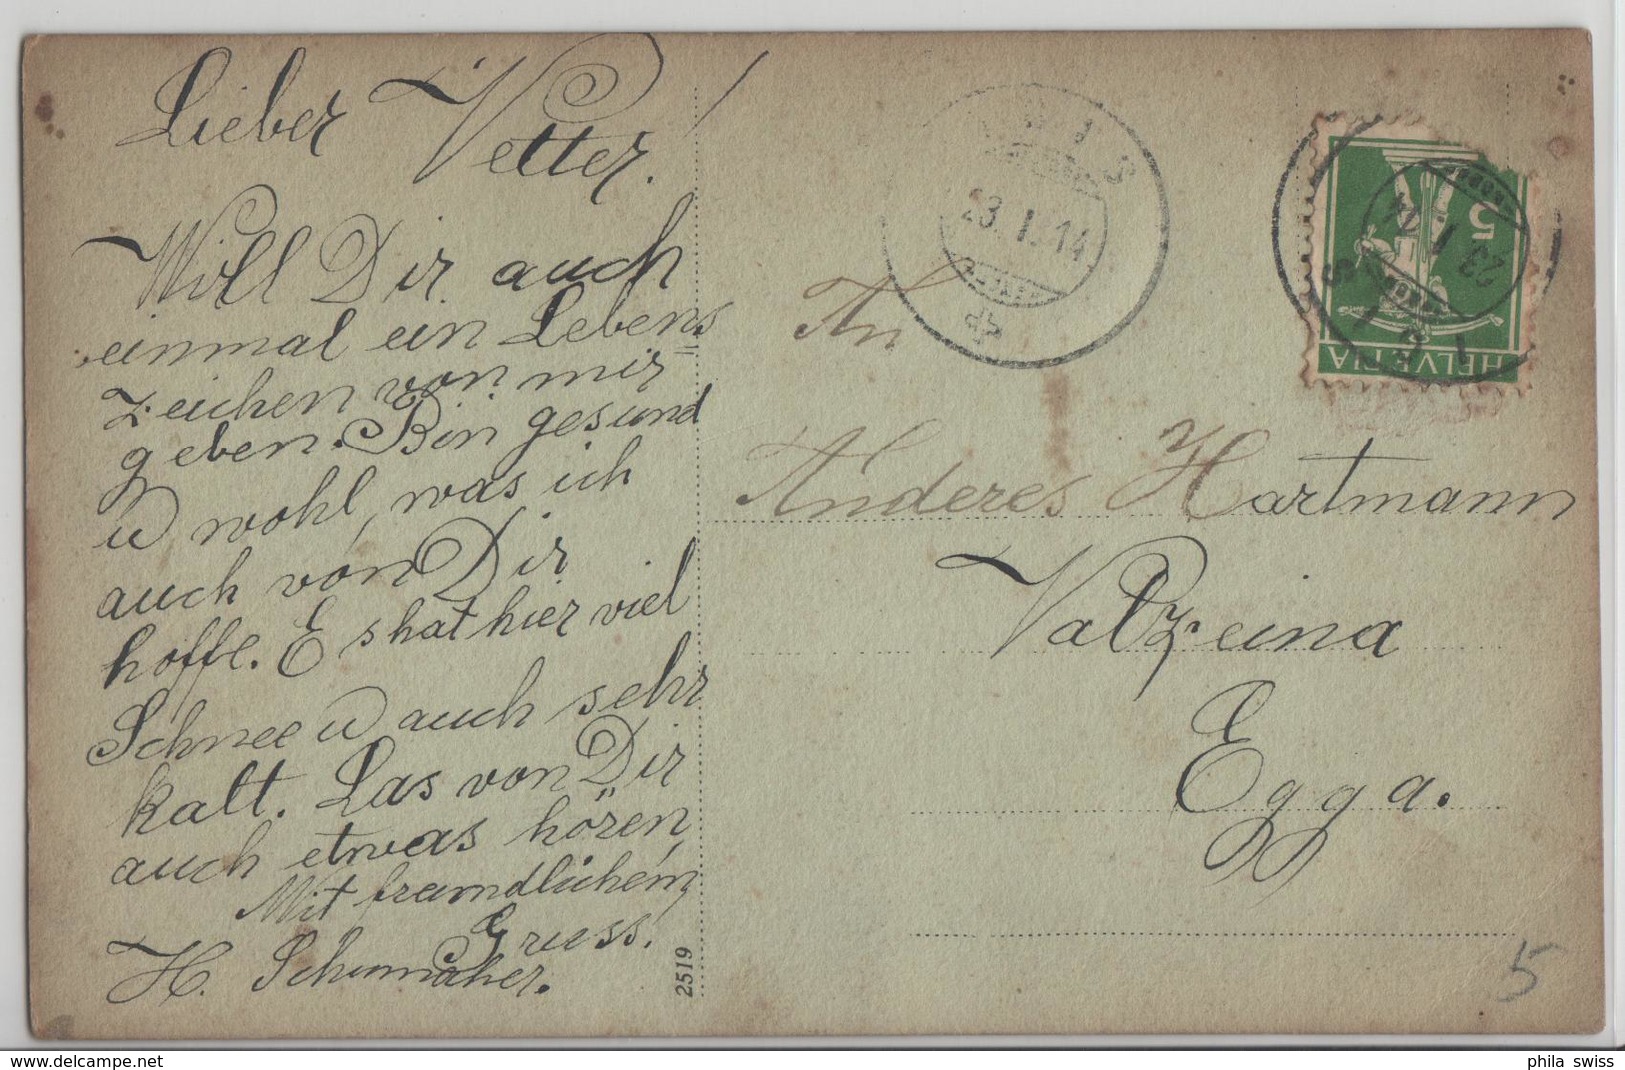 Lieber Vetter!
Will Dir auch
einmal ein Lebens=
zeichen von mir
geben. Bin gesund
u wohl, was ich
auch von Dir
hoffe. Es hat hier viel
Schnee u auch sehr
kalt. Las von Dir
auch etwas hören,
Mit freundlichem
Gruss.
H. Schumacher.
2519
23.I.14
HELVETIA
5
23 I 14
An
Anderes Hartmann
Valzeina
Egga.
5
www.delcampe.net
phila_swiss